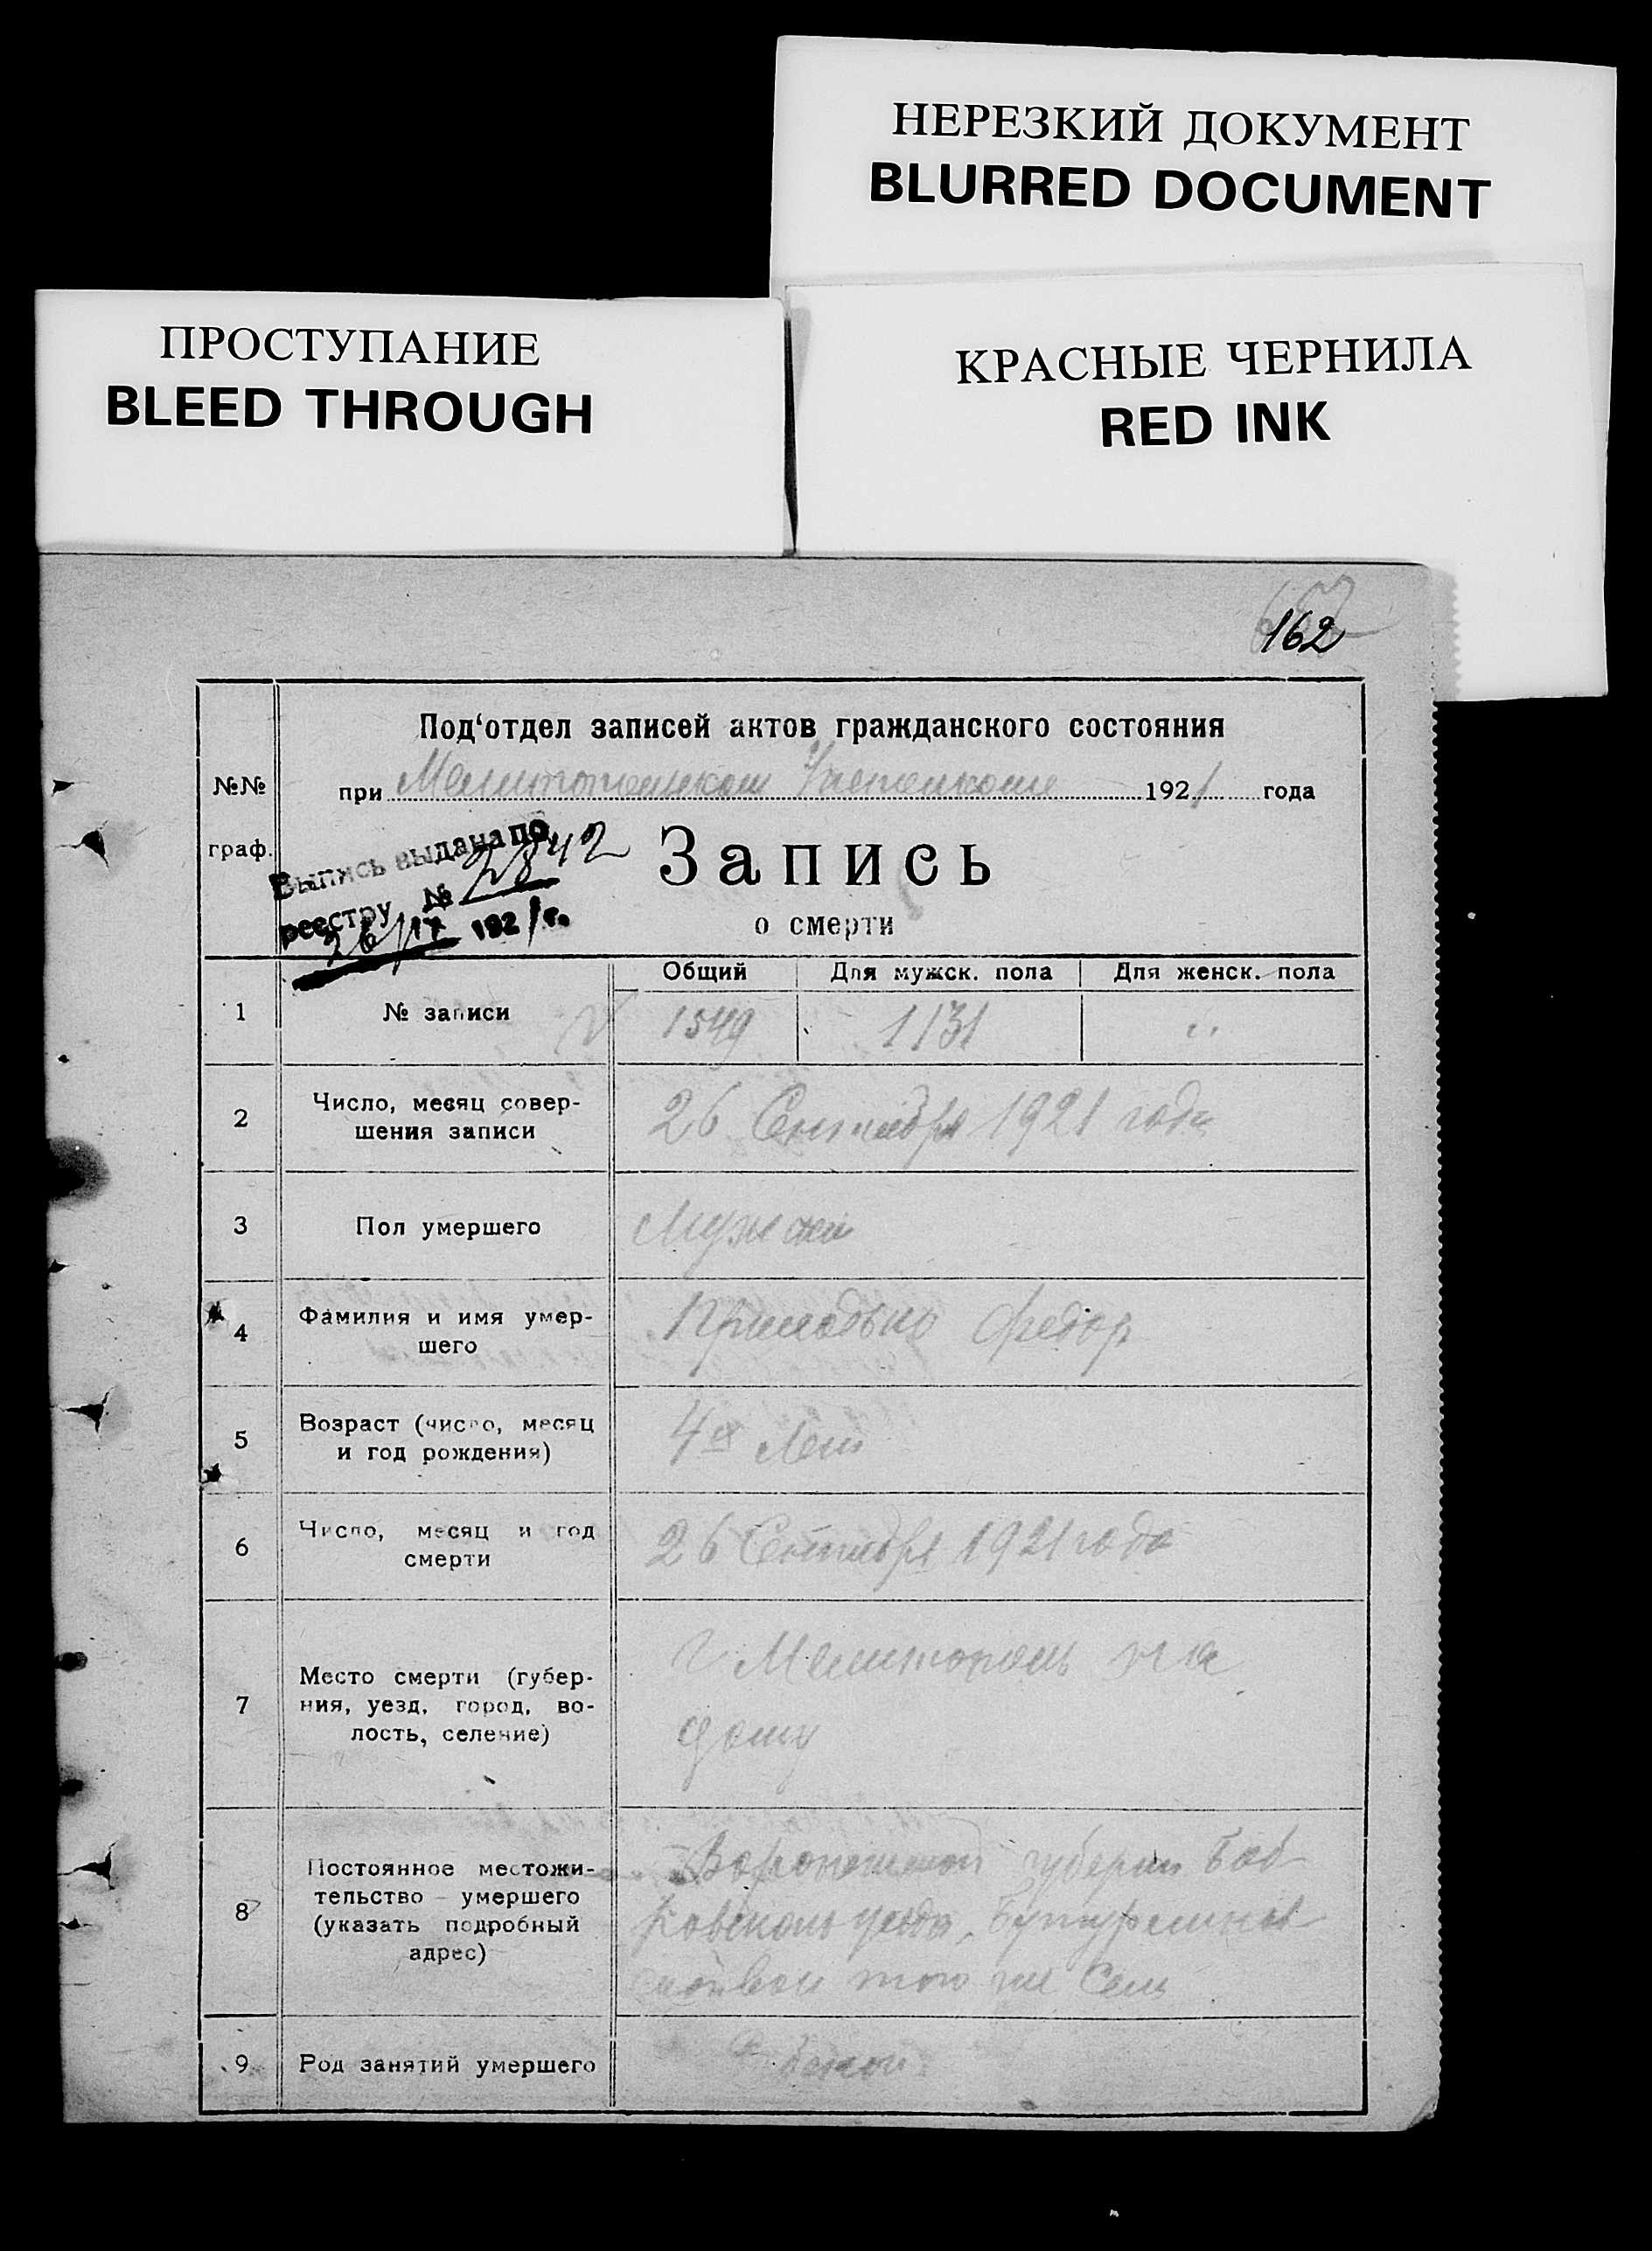 НЕРЕЗКИЙ ДОКУМЕНТ
BLURRED DOCUMENT
ПРОСТУПАНИЕ
BLEED THROUGH
КРАСНЫЕ ЧЕРНИЛА
RED INK
162
Под‘отдел записей актов гражданского состояния
№№
граф.
при Мелитопольском 1921 года
Выпись выдана по
реестру № 2842
26/IX 1921 г.
Запись
о смерти
Общий Для мужск. пола Для женск. пола
1 № записи 1549 1131 "
2 Число, месяц совер-
шения записи
26 Сентября 1921 года
3 Пол умершего Мужской
4 Фамилия и имя умер-
шего
Приходько Федор
5 Возраст (число, месяц
и год рождения)
4х лет
6 Число, месяц и год
смерти
26 Сентября 1921 года
7 Место смерти (губер-
ния, уезд, город, во-
лость, селение)
г Мелитополь на
дому
8 Постоянное местожи-
тельство умершего
(указать подробный
адрес)
Воронежской губернии Боб-
ровского уезда, Бутурлинов-
ской вол того же Села
9 Род занятий умершего